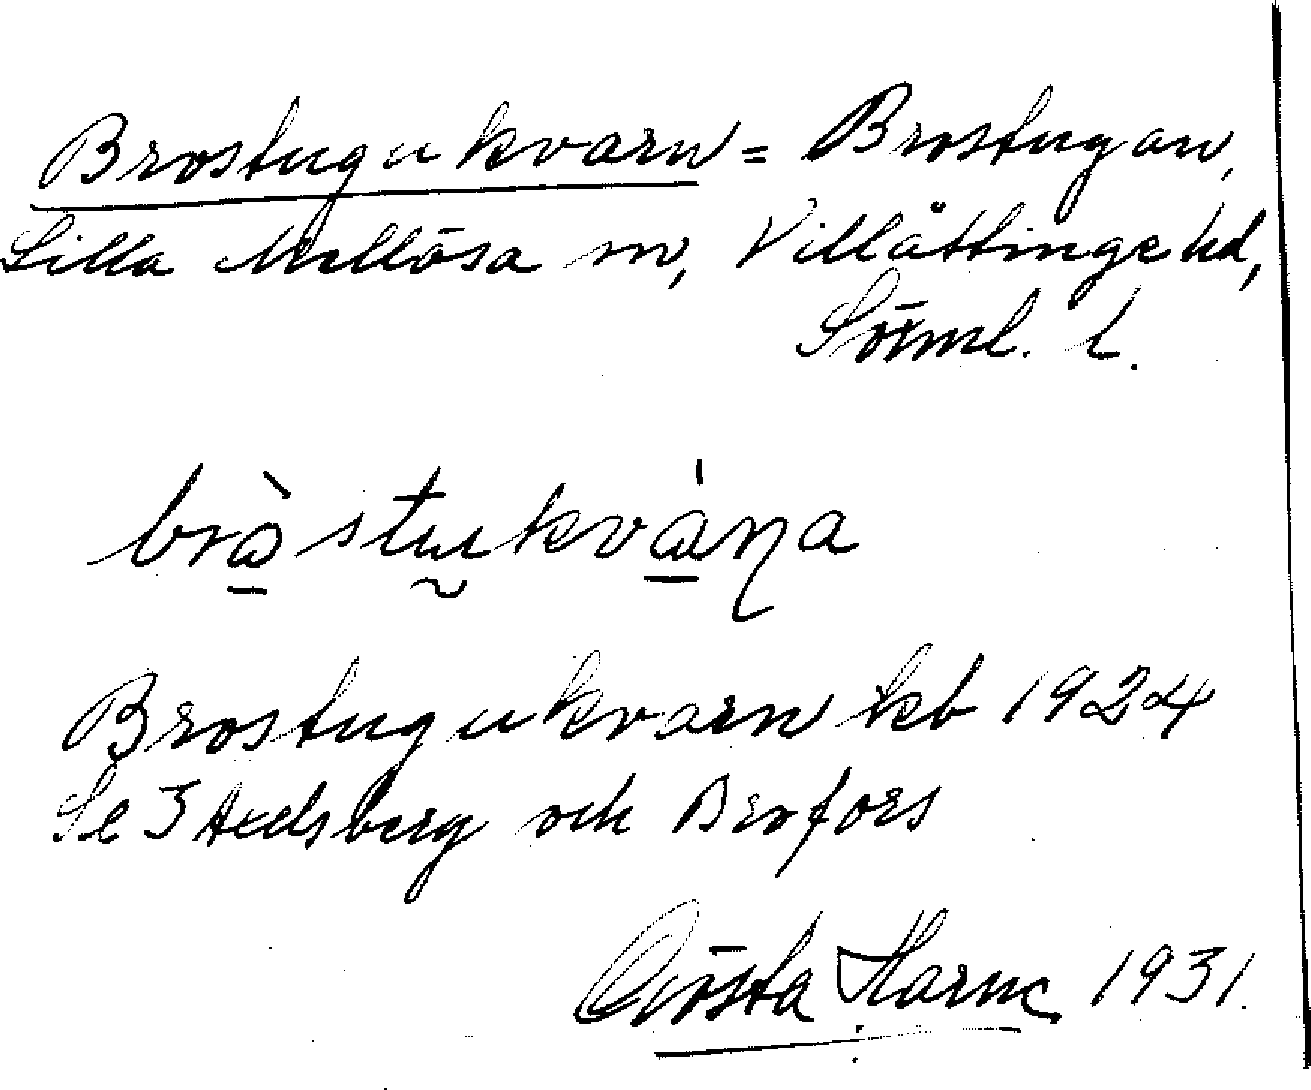 Brostugukvarn = Brostugan,
Lilla Mellösa sn, Villåttinge hd,
Sörml. l.
brɷ̀stukvána
Brostugukvarn kb 1924
Se 3 Axelsberg och Brofors
Gösta Harne 1931.